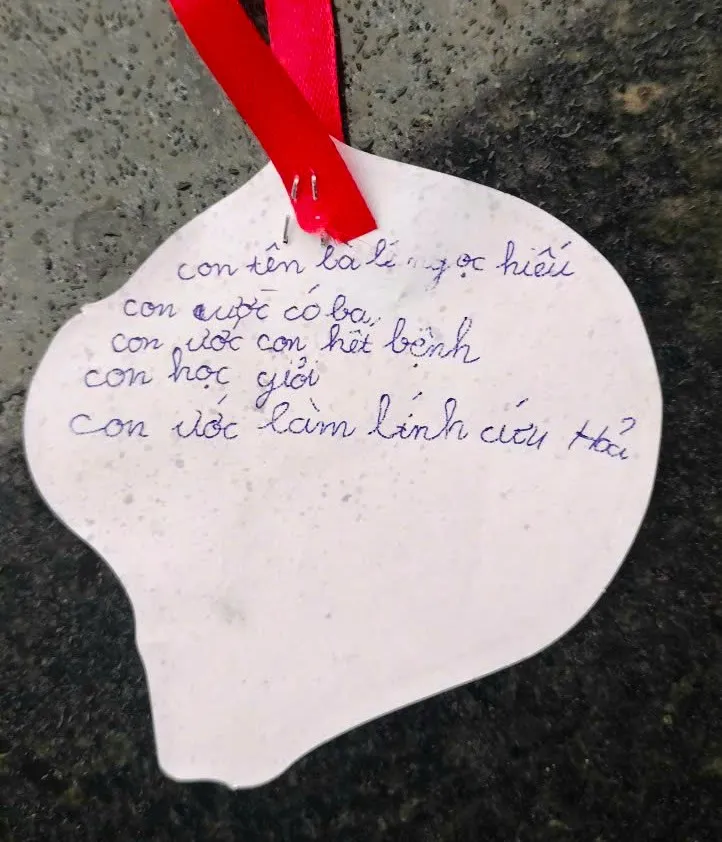 con tên là lê ngọc hiếu
con ước có ba
con ước con hết bệnh
con học giỏi
con ước làm lính cứu Hỏa